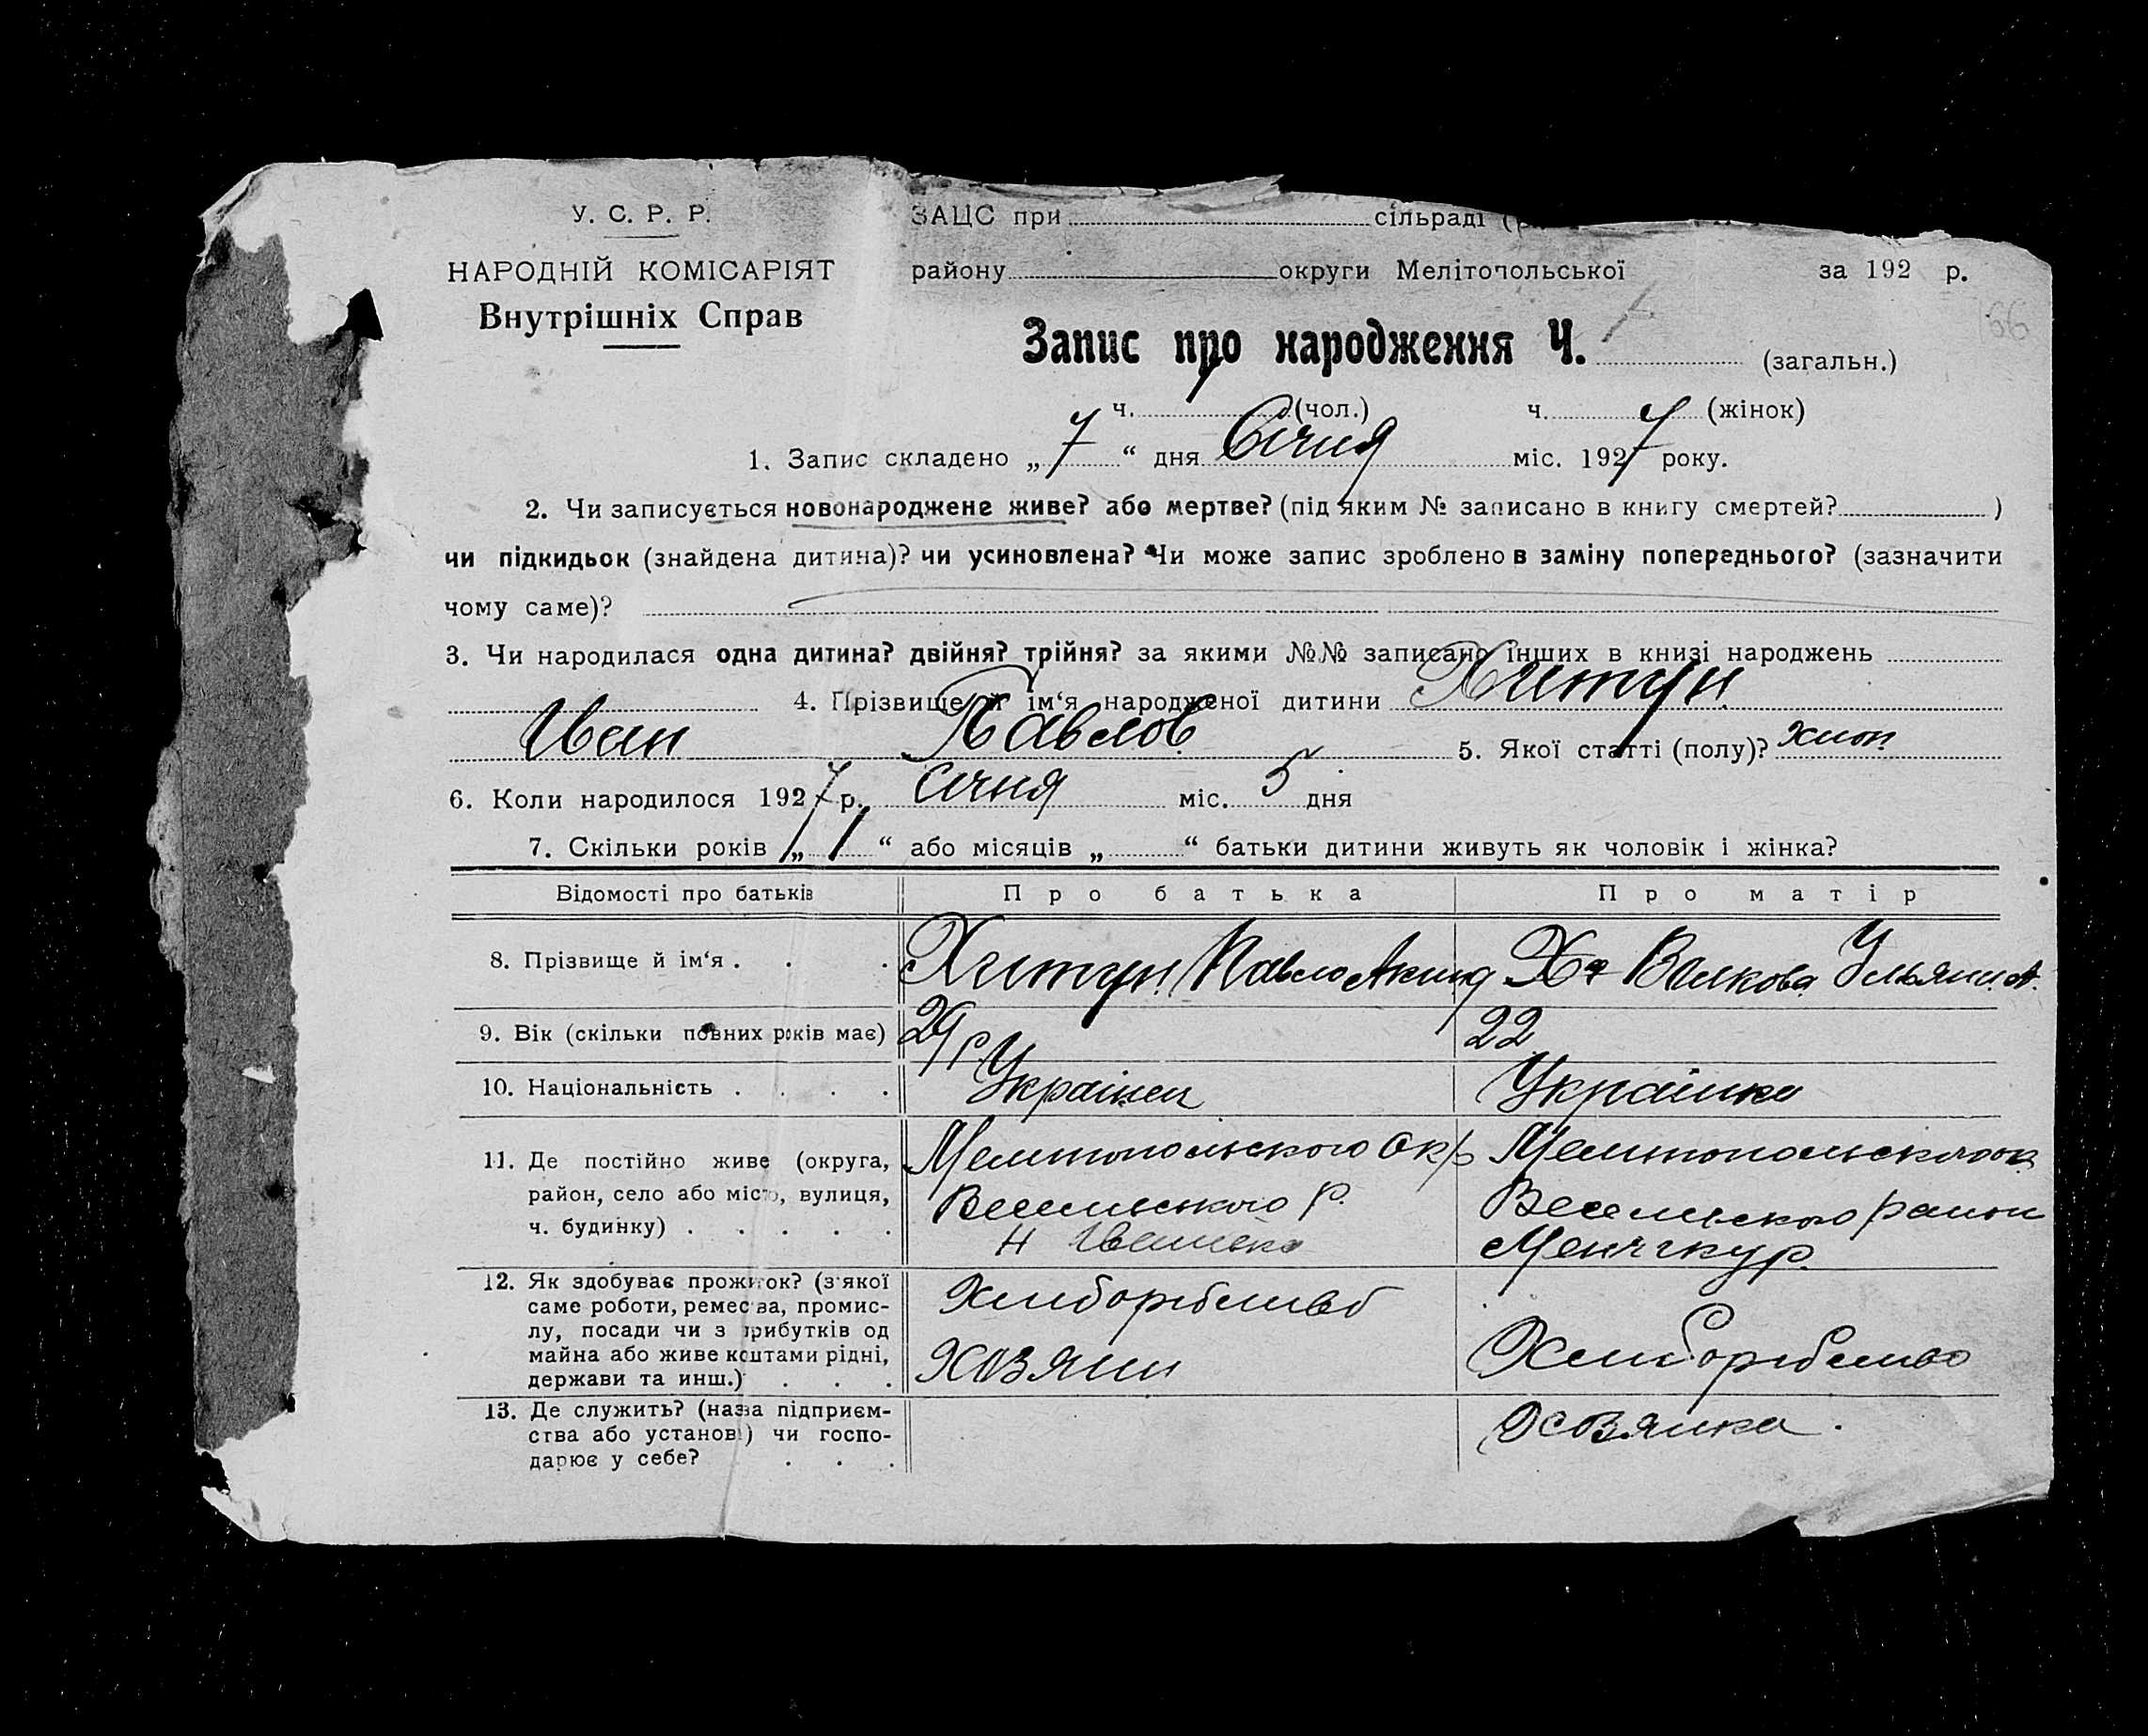 У. С. Р. Р.
НАРОДНІЙ КОМІСАРІЯТ
Внутрішніх Справ
ЗАЦС при сільраді
району округи Мелітопольської за 192 р.
166
Запис про народження Ч. 1 (загальн.)
ч. 1 (чол.) ч. (жінок)
1. Запис складено „7“ дня Січня міс. 1927 року.
2. Чи записується новонароджене живе? або мертве? (під яким № записано в книгу смертей? )
чи підкидьок (знайдена дитина)? чи усиновлена? Чи може запис зроблено в заміну попереднього? (зазначити
чому саме)?
3. Чи народилася одна дитина? двійня? трійня? за якими №№ записано інших в книзі народжень
4. Прізвище й ім‘я народженої дитини Хитун
Іван Павлов 5. Якої статті (полу)? хлоп
6. Коли народилося 1927 р. січня міс. 5 дня
7. Скільки років „1“ або місяців „ “ батьки дитини живуть як чоловік і жінка?
Відомості про батьків Про батька Про матір
8. Прізвище й ім‘я . . . Хитун Павло Аким Волкова Ульяни А.
9. Вік (скільки повних років має) 29 р. 22
10. Національність . . . . Українец Українка
11. Де постійно живе (округа,
район, село або місто, вулиця,
ч. будинку) . . . . .
Мелитопольського Окр
Веселиського р.
Мелитопольского ок
Веселиського район
Менчикур.
12. Як здобуває прожиток? (з якої
саме роботи, ремества, промис-
лу, посади чи з прибутків од
майна або живе коштами рідні,
держави та инш.) . . .
Хлиборібство
Хозяин
Хлиборібство
13. Де служить? (назва підприєм-
ства або установі) чи госпо-
дарює у себе? . . .
Хозяика.